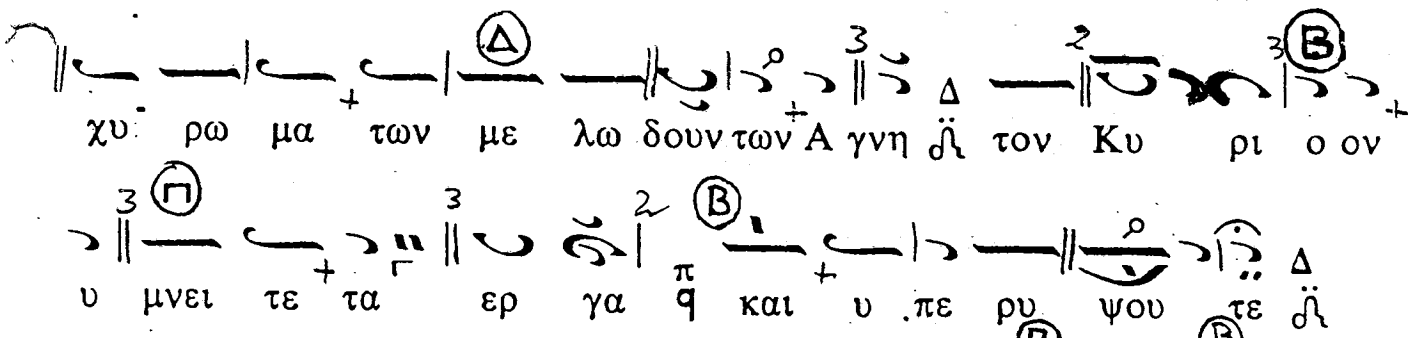 χυ ρω μα των με λω δουν των Α γνη τον Κυ ρι ο ον
υ μνει τε τα ερ γα και υ πε ρυ ψου τε